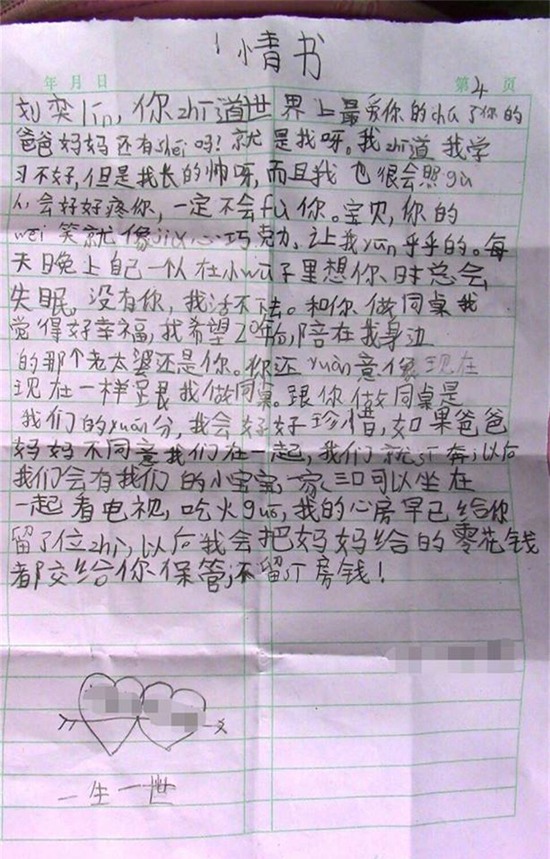 情书
年 月 日 第 4 页
刘奕lin，你zhī道世界上最爱你的chú了你的
爸爸妈妈还有shei吗？就是我呀。我zhī道我学
习不好，但是我长的帅呀，而且我也很会照gù
人，会好好疼你，一定不会fù你。宝贝，你的
wēi笑就像jiá心巧克力，让我yūn乎乎的。每
天晚上自己一人在小wū子里想你时总会
失眠，没有你，我活不下去。和你做同桌我
觉得好幸福，我希望20年后，陪在我身边
的那个老太婆还是你。你还yuàn意像现在
现在一样跟我做同桌。跟你做同桌是
我们的yuán分，我会好好珍惜，如果爸爸
妈妈不同意我们在一起，我们就sī奔，以后
我们会有我们的小宝宝，一家三口可以坐在
一起看电视，吃火guō，我的心房早已给你
留了位zhì，以后我会把妈妈给的零花钱
都交给你保管，不留丁房钱！
一生一世